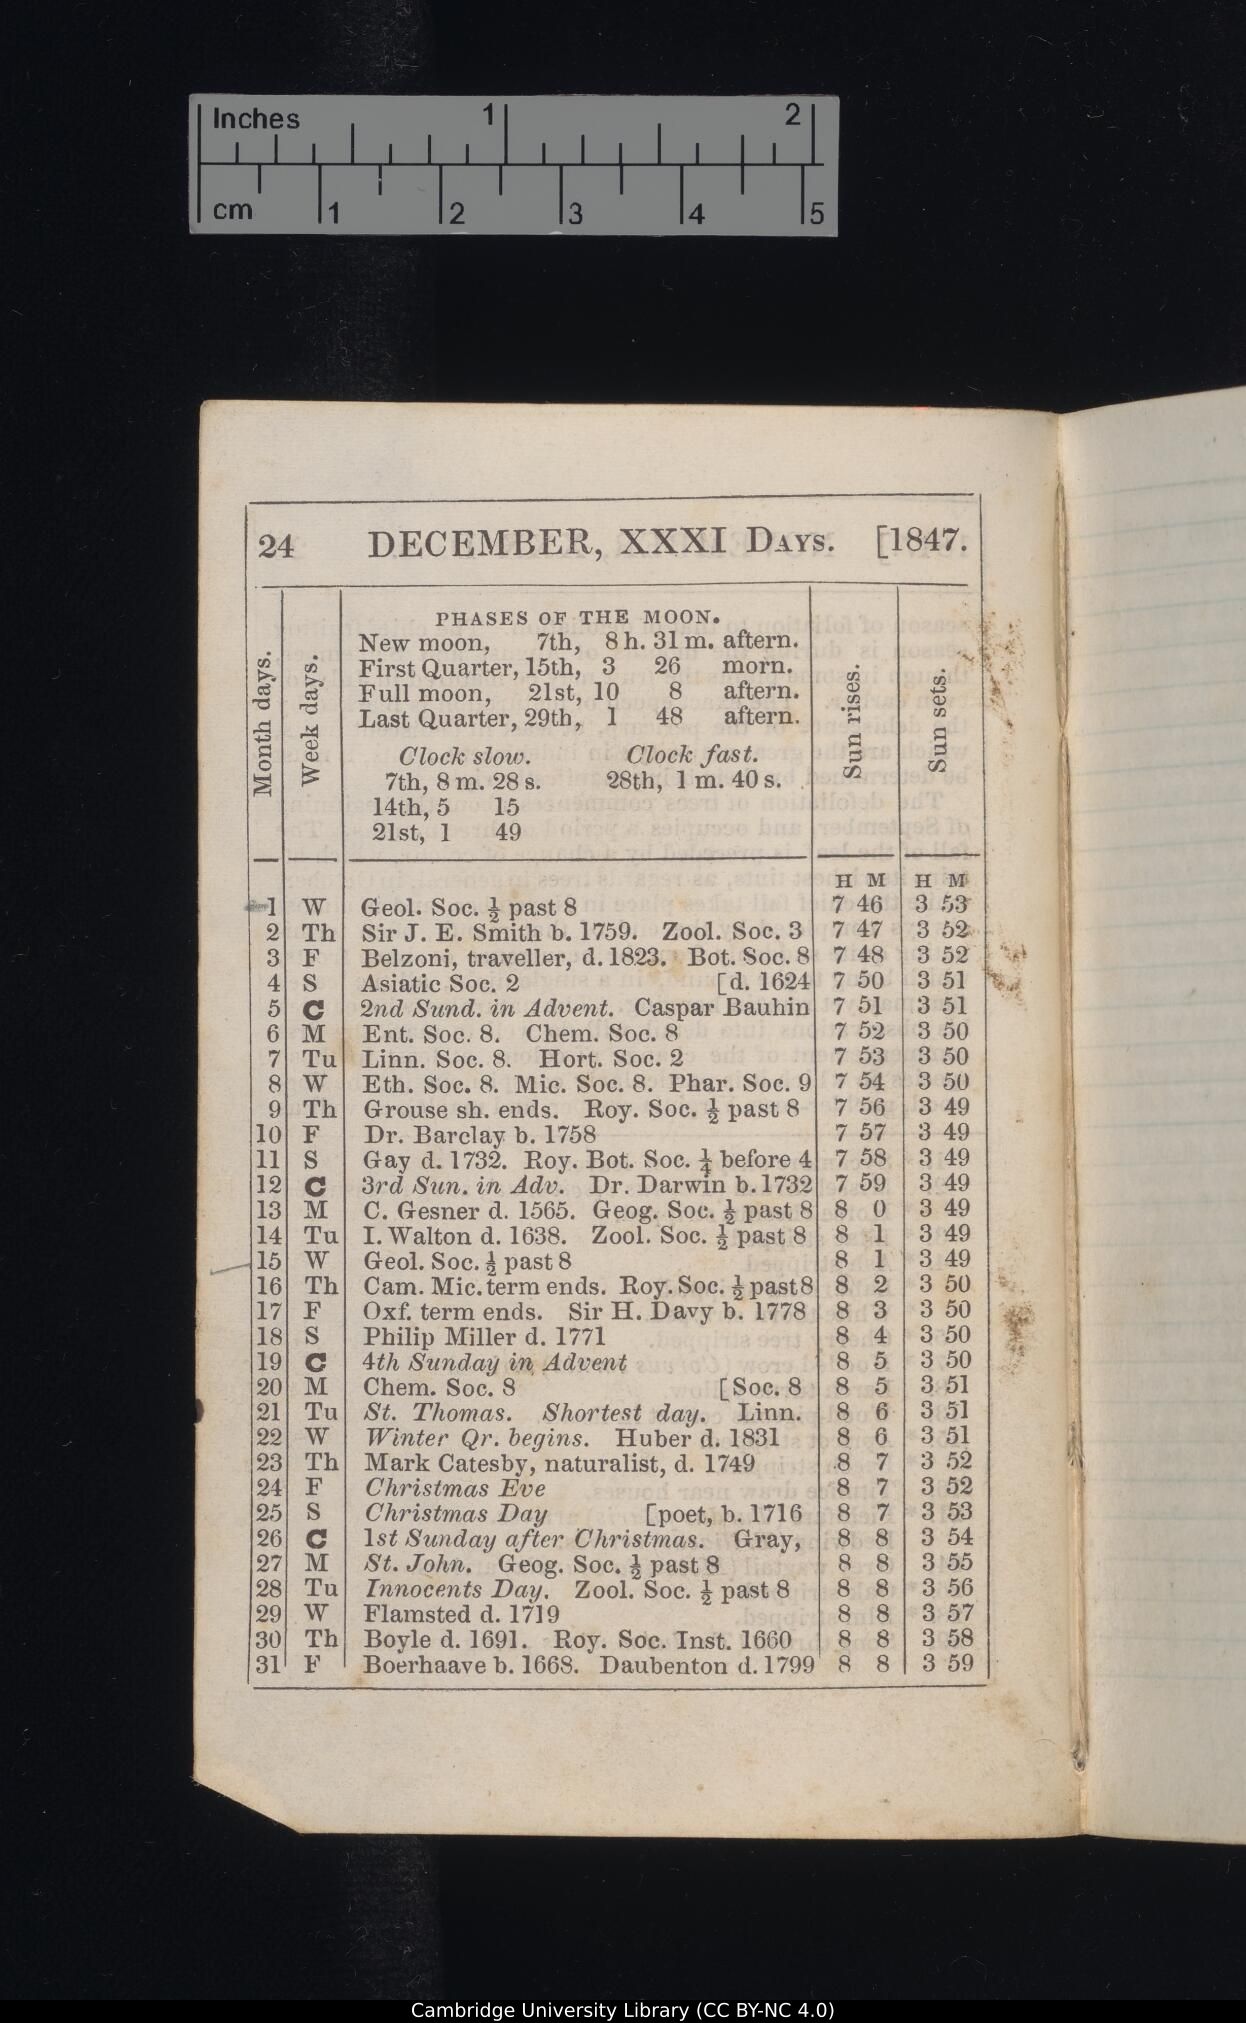 Inches 1 2
cm 1 2 3 4 5
24 DECEMBER, XXXI DAYS. [1847.
Month days.
Week days.
PHASES OF THE MOON.
New moon, 7th, 8 h. 31 m. aftern.
First Quarter, 15th, 3 26 morn.
Full moon, 21st, 10 8 aftern.
Last Quarter, 29th, 1 48 aftern.
Clock slow. Clock fast.
7th, 8 m. 28 s. 28th, 1 m. 40 s.
14th, 5 15
21st, 1 49
Sun rises.
Sun sets.
H M H M
1 W Geol. Soc. ½ past 8 7 46 3 53
2 Th Sir J. E. Smith b. 1759. Zool. Soc. 3 7 47 3 52
3 F Belzoni, traveller, d. 1823. Bot. Soc. 8 7 48 3 52
4 S Asiatic Soc. 2 [d. 1624 7 50 3 51
5 C 2nd Sund. in Advent. Caspar Bauhin 7 51 3 51
6 M Ent. Soc. 8. Chem. Soc. 8 7 52 3 50
7 Tu Linn. Soc. 8. Hort. Soc. 2 7 53 3 50
8 W Eth. Soc. 8. Mic. Soc. 8. Phar. Soc. 9 7 54 3 50
9 Th Grouse sh. ends. Roy. Soc. ½ past 8 7 56 3 49
10 F Dr. Barclay b. 1758 7 57 3 49
11 S Gay d. 1732. Roy. Bot. Soc. ¼ before 4 7 58 3 49
12 C 3rd Sun. in Adv. Dr. Darwin b. 1732 7 59 3 49
13 M C. Gesner d. 1565. Geog. Soc. ½ past 8 8 0 3 49
14 Tu I. Walton d. 1638. Zool. Soc. ½ past 8 8 1 3 49
15 W Geol. Soc. ½ past 8 8 1 3 49
16 Th Cam. Mic. term ends. Roy. Soc. ½ past 8 8 2 3 50
17 F Oxf. term ends. Sir H. Davy b. 1778 8 3 3 50
18 S Philip Miller d. 1771 8 4 3 50
19 C 4th Sunday in Advent 8 5 3 50
20 M Chem. Soc. 8 [Soc. 8 8 5 3 51
21 Tu St. Thomas. Shortest day. Linn. 8 6 3 51
22 W Winter Qr. begins. Huber d. 1831 8 6 3 51
23 Th Mark Catesby, naturalist, d. 1749 8 7 3 52
24 F Christmas Eve 8 7 3 52
25 S Christmas Day [poet, b. 1716 8 7 3 53
26 C 1st Sunday after Christmas. Gray, 8 8 3 54
27 M St. John. Geog. Soc. ½ past 8 8 8 3 55
28 Tu Innocents Day. Zool. Soc. ½ past 8 8 8 3 56
29 W Flamsted d. 1719 8 8 3 57
30 Th Boyle d. 1691. Roy. Soc. Inst. 1660 8 8 3 58
31 F Boerhaave b. 1668. Daubenton d. 1799 8 8 3 59
Cambridge University Library (CC BY-NC 4.0)